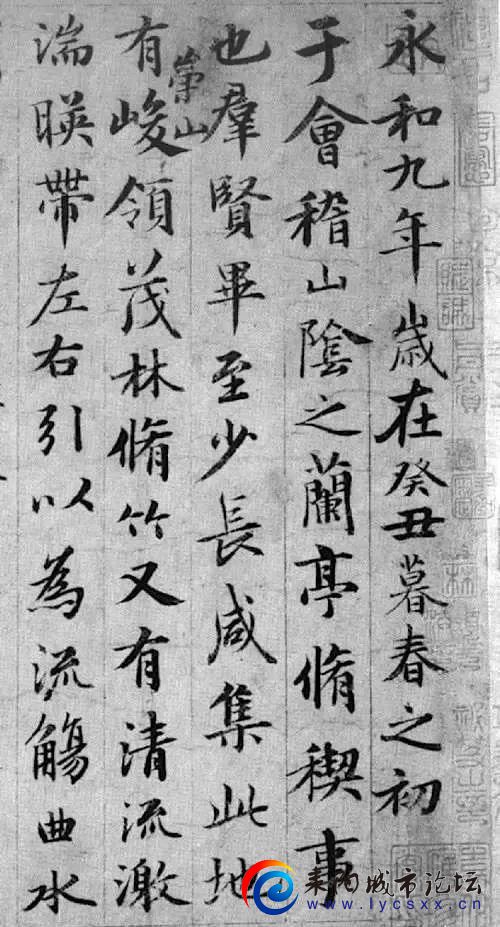 永和九年歲在癸丑暮春之初
于會稽山陰之蘭亭脩稧事
也羣賢畢至少長咸集此地
有崇山峻領茂林脩竹又有清流激
湍暎帶左右引以為流觴曲水
耒阳城市论坛
www.lycsxx.cn